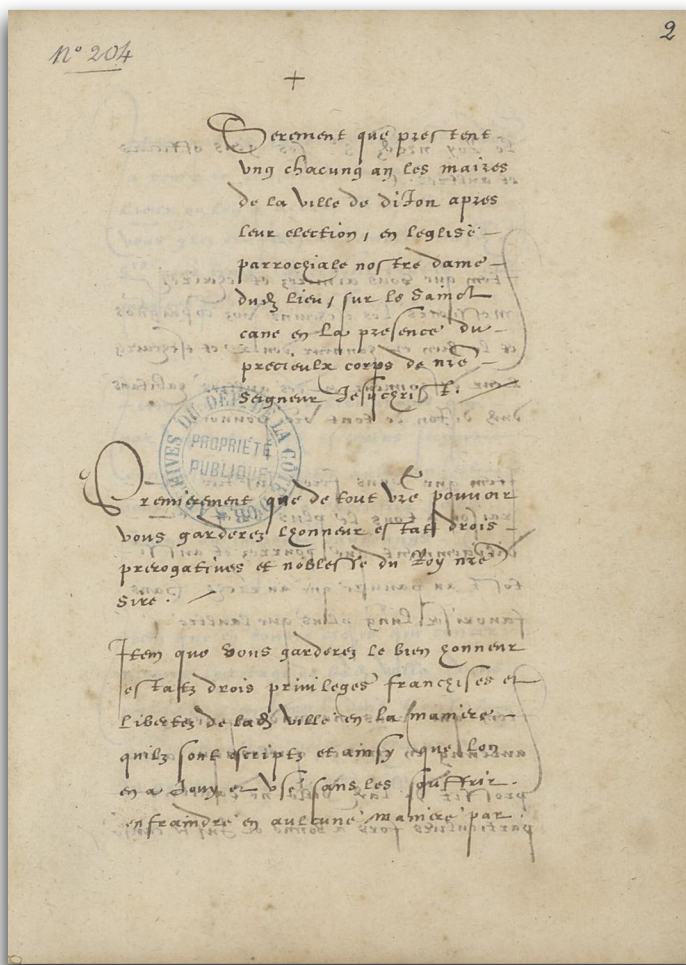 N° 204
2
Serement que prestent
ung chacung an les maires
de la ville de diJon apres
leur election, en leglise
parrochiale nostre dame
dud lieu, sur le Sainct
cane en la presence du
precieulx corps de nre
Seigneur Jesuchrist.
ARCHIVES DU DÉPT DE LA CÔTE D'OR
PROPRIÉTÉ
PUBLIQUE
Premierement que de tout vre pouvoir
vous garderez lhonneur estat drois
prerogatives et noblesse du Roy nre
Sire.
Item que vous garderez le bien honneur
estatz drois privileges franchises et
libertez de lad ville en la maniere
quilz sont escriptz et ainsy que lon
en a Jouy et vse sans les souffrir
enfraindre en aulcune maniere par